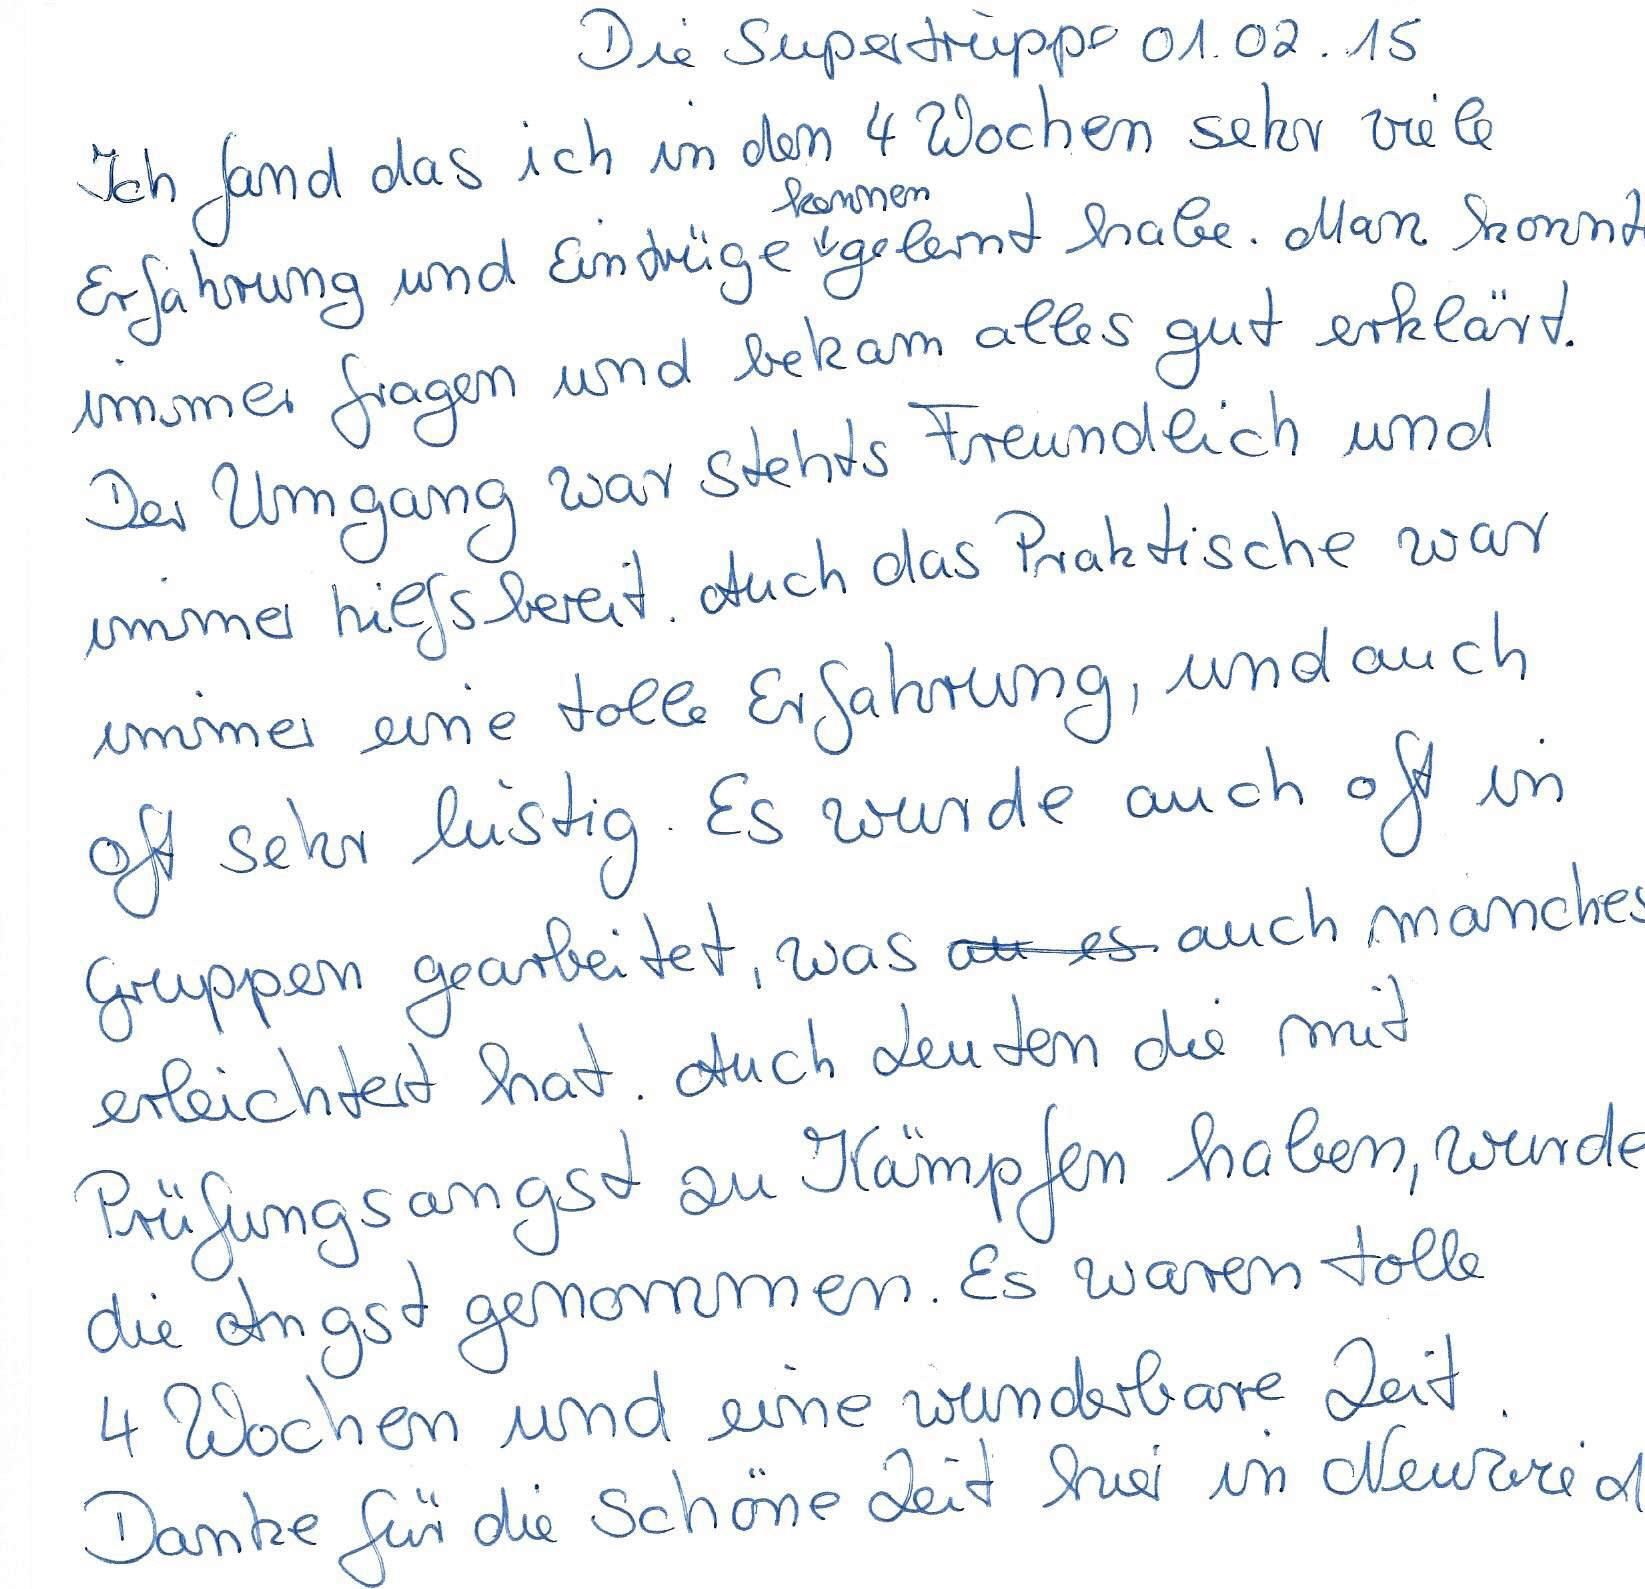 Die Supertruppe 01.02.15
Ich fand das ich in den 4 Wochen sehr viele
kennen
Erfahrung und Eindrüge gelernt habe. Man konnt
immer fragen und bekam alles gut erklärt.
Der Umgang war stehts Freundlich und
immer hilfsbereit. Auch das Praktische war
immer eine tolle Erfahrung, und auch
oft sehr lustig. Es wurde auch oft in
Gruppen gearbeitet, was au es auch manches
erleichtert hat. Auch Leuten die mit
Prüfungsangst zu Kämpfen haben, wurde
die Angst genommen. Es waren tolle
4 Wochen und eine wunderbare Zeit.
Danke für die Schöne Zeit hier in Neuwied